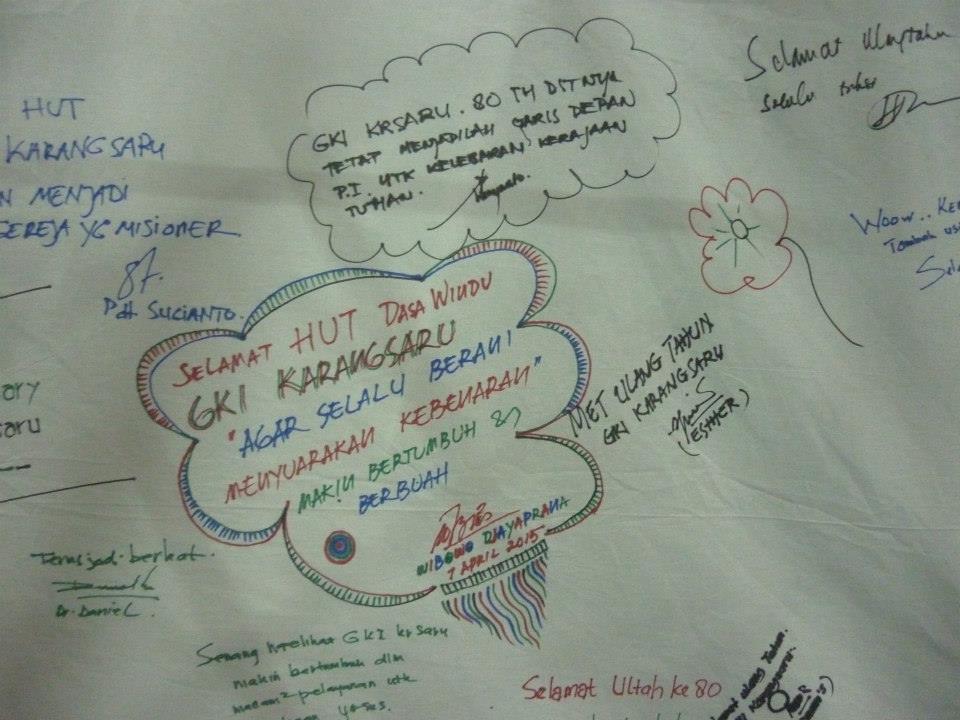 HUT
KARANGSARU
N MENJADI
GEREJA YG MISIONER
Pdt SUCIANTO.
GKI KRSARU. 80 TH DITNYA
TETAT MENJADILAH GARIS DEPAN
P.I. UTK KELEBARAN KERAJAAN
TUHAN.
Selamat Ulangtahun
Selalu
Woow..
Tambah
Sela
SELAMAT HUT DASA WINDU
GKI KARANGSARU
"AGAR SELALU BERANI
MENYUARAKAN KEBENARAN"
MAKIN BERTUMBUH &
BERBUAH
WIBOWO DJAYAPRANA
7 APRIL 2015
MET ULANG TAHUN
GKI KARANGSARU
(ESTHER)
ory
saru
Terus jadi berkat.
Dr. Daniel.
Senang melihat GKI krsaru
makin bertumbuh dlm
macam² pelayanan utk
Yesus.
Selamat Ultah ke 80